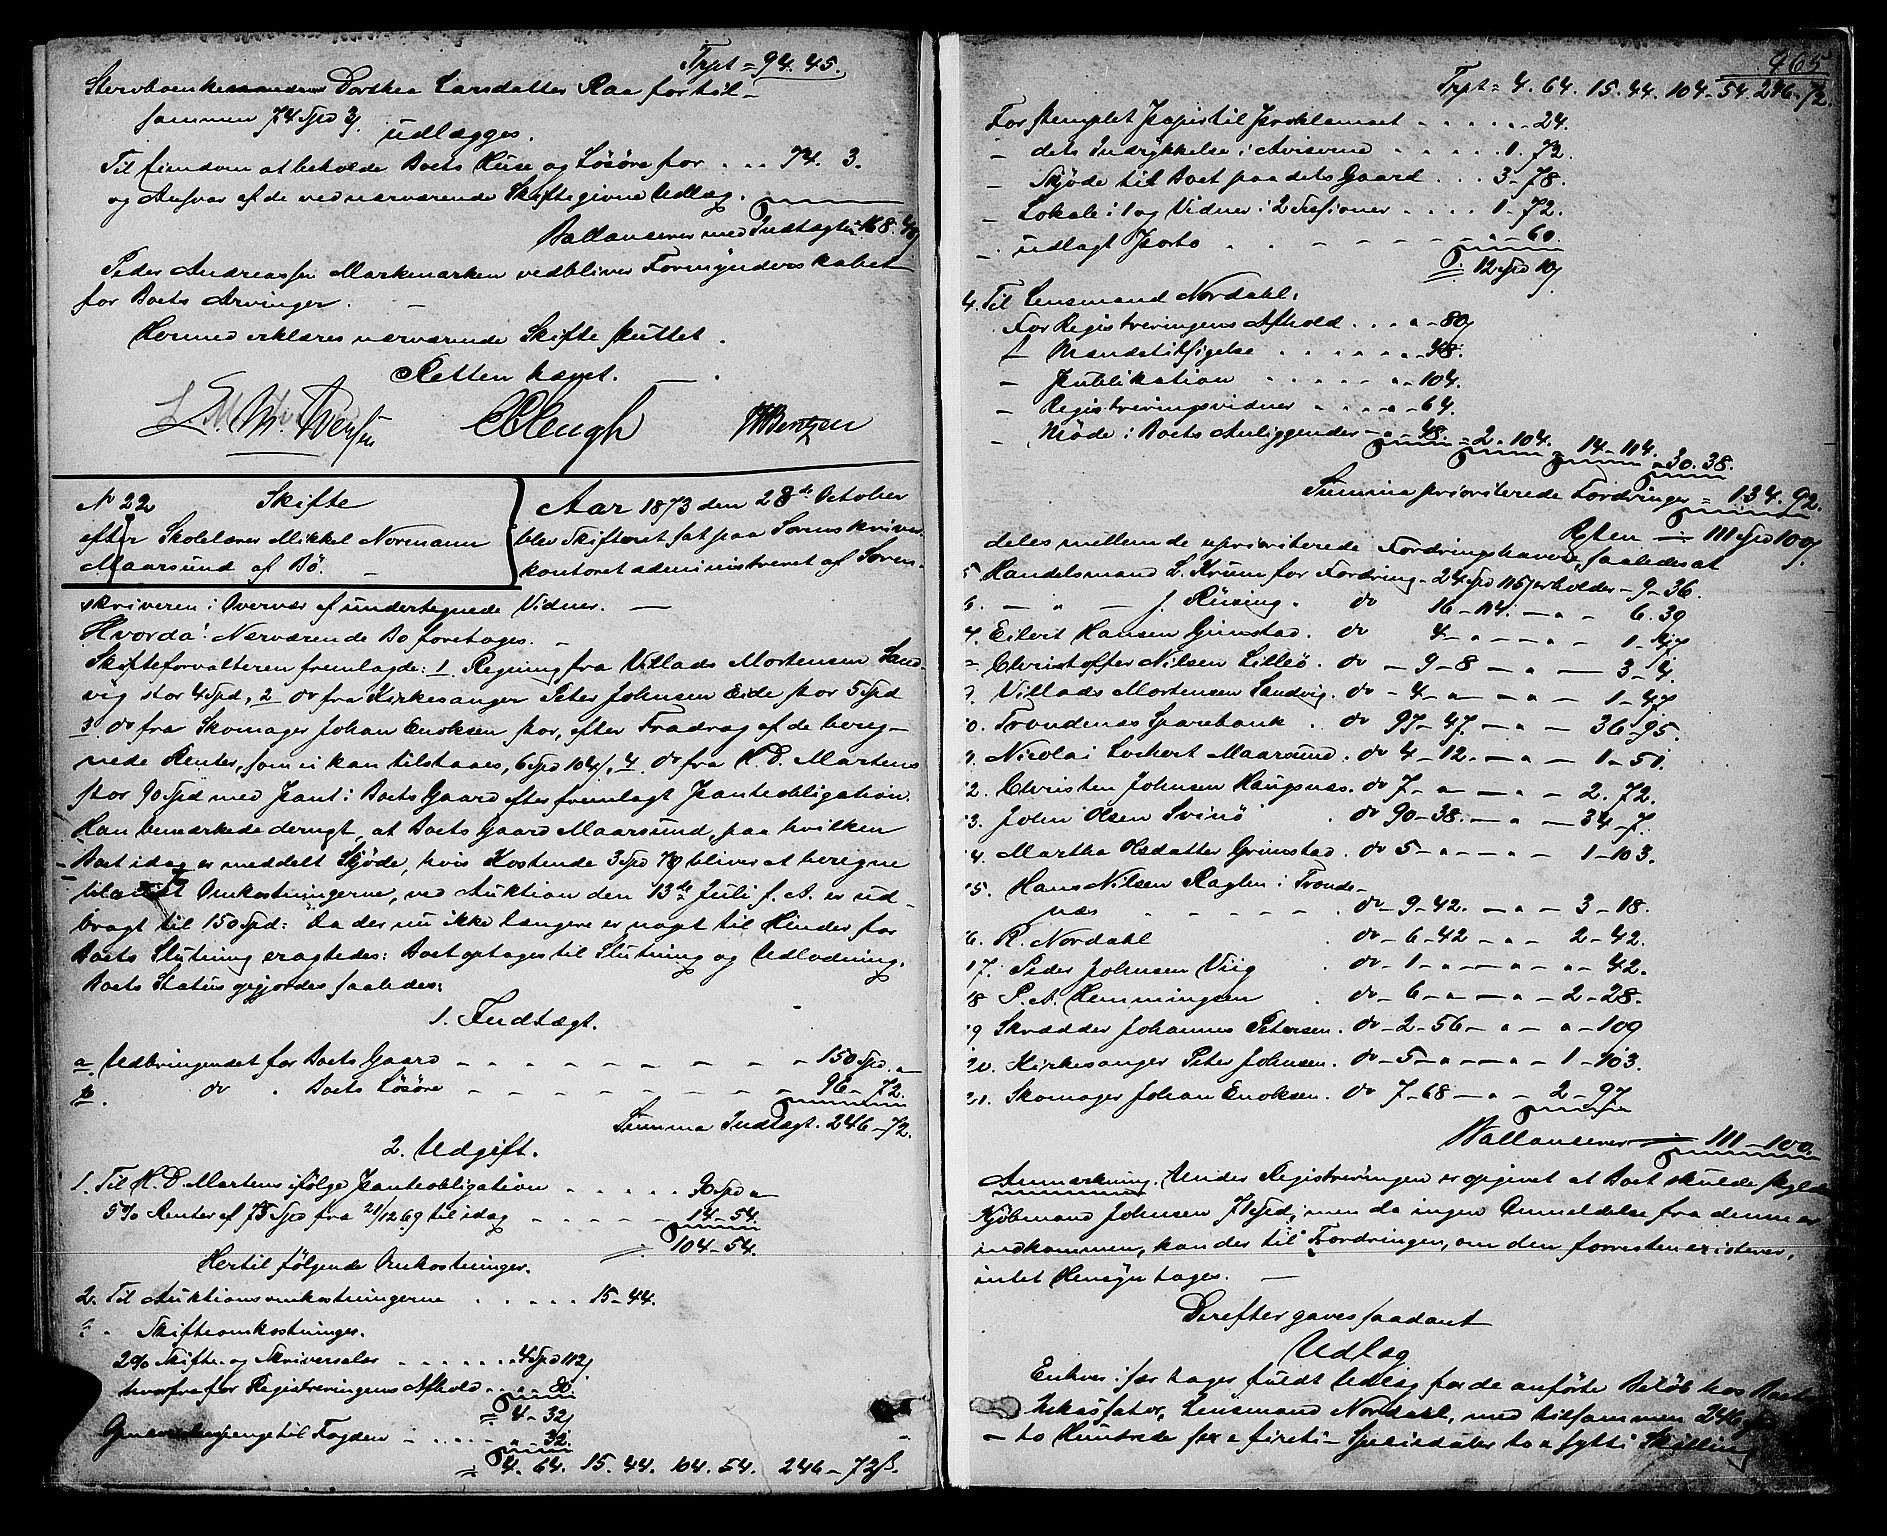 Trpt = 94. 45.
Sterboenkemanden Dorthea Larsdatter Raa for til-
sammen 74 Spd 3 ß
udlægges.
Til Eiendom at beholde Boets Huse og Løsøre for . . . 74. 3.
og Ansvar af de ved nærværende Skifte givne Udlæg.
Ballancerer med Indtægten 168. 48
Peder Andreassen Markemarken vedbliver Formynderskabet
for Boets Arvinger. —
Hermed erklæres nærværende Skifte sluttet.
Retten hævet. —
N 22 Skifte
efter Skolelærer Mikkel Normann
Maarsund af Bö. —
Aar 1873 den 28de October
blev Skifteret sat paa Sorenskriver-
kontoret administreret af Soren-
skriveren i Overvær af undertegnede Vidner. —
Hvorda! Nærværende Bo foretages. —
Skifteforvalteren fremlagde: 1. Regning fra Villads Mortensen Sand-
vig stor 4 Spd, 2 do fra Kirkesanger Peter Johnsen Eide stor 5 Spd
3 do fra Skomager Johan Enoksen stor, efter Fradrag af de bereg-
nede Renter, som ei kan tilstaaes, 6 Spd 104 ß, 4. do fra H. D. Martens
stor 90 Spd med Pant i Boets Gaard efter fremlagt Panteobligation.
Han bemærkede derngt, at Boets Gaard Maarsund, paa hvilken
Boet idag er meddelt Skjöde, hvis Kostende 3 Spd 78 ß bliver at beregne
Omkostningerne, ved Auktion den 13de Juli f. A. er ud-
bragt til 150 Spd: Da der nu ikke længere er noget til Hinder for
Boets Slutning eragtedes: Boet optages til Slutning og Udlodning.
Boets Status opgjordes saaledes:
1. Indtægt.
a. Udbringendet for Boets Gaard — — — 150 Spd. "
b. do " Boets Løsøre — — — 96 – 72.
Summa Indtægt. 246 – 72.
2. Udgift.
1. Til H. D. Martens ifølge Panteobligation . . . . . 90 Spd "
5% Renter af 75 Spd fra 21/12 69 til idag — — — 14 – 54.
104 – 54.
Hertil følgende Omkostninger.
2. Til Auktionsomkostningerne . . . . . 15 – 44.
Skifteomkostninger.
2% Skifte- og Skriversalær . . . . . . 4 Spd 112 ß
hvorfra for Registreringens Afhold . . . 80
= 4 – 32 ß
til Fogden — . . . . " – 32.
= 4. 64. 15. 44. 104. 54. 246 – 72 ß.
465
Trpt = 4. 64. 15. 44. 104. 54. 246. 72.
For stemplet Papir til Proklamaet . . . . . . – 24.
– dets Indrykkelse i Aviserne . . . . . 1. 72.
– Skjöde til Boet paa dets Gaard . . . 3 – 78.
– Lokale i 1 og Vidner i 2 Sessioner . . . . 1. 72.
– udlagt Porto . . — — — — " – 60.
= 12 Spd 10 ß
4. Til Lensmand Nordahl:
For Registreringens Afhold . . . " – 80 ß
f Mandstilsigelse . . . . . . " – 48.
– Publikation . . . . . " – 104.
– Registreringsvidner . . . . " – 64.
– Møde i Boets Anliggender — " 48. = 2. 104. 14 – 114.
= 30. 38.
Summa prioriterede Fordringer = 134. 92.
Resten — 111 Spd 100 ß.
deles mellem de uprioriterede Fordringshavere, saaledes at
5 Handelsmand L. Krum for Fordring – 24 Spd 115 ß erholder – 9 – 36.
6. — " — J. Rüsing. do 16 – 114. — " – 6. 39
7. Eilert Hansen Grimstad. do 4 – " — " – 1. 47
Christoffer Nilsen Lilleö. do – 9 – 8 — " — 3 – 4.
9. Villads Mortensen Sandvig. do – 4 – " — " — 1 – 47
10. Trondenæs Sparebank . do 97 – 47. — " — 36 – 95.
11. Nicolai Lockert Maarsund. do 4 – 12. — " — 1 – 51.
12. Christen Johnsen Haugsnæs. do 7 – " — " – 2. 72.
13. John Olsen Svinö . do 90 – 38. — " — 34 – 7.
14. Martha Olsdatter Grimstad. do 5 – " — " — 1 – 103.
15. Hans Nilsen Raglen i Tronde-
næs — — — — . do – 9 – 42. — " — 3 – 18.
16. R. Nordahl . do – 6 – 42 — " – 2 – 42.
17. Peder Johnsen Viig . do – 1 – " — " — " – 42.
18 P. A. Hemmingsen . do – 6 – " — " — 2 – 28.
19 Skrædder Johannes Petersen. do – 2 – 56 – " — " – 109
20. Kirkesanger Peter Johnsen. do – 5 – " — " — 1 – 103.
21. Skomager Johan Enoksen. do 7 – 68 — " – 2 – 97
Ballancerer — 111 – 100.
Anmærkning. Under Registreringen er opgivet at Boet skulde skylde
Kjöbmand Johnsen 71 Spd, men da ingen Anmeldelse fra denne er
indkommen, kan der til Fordringen, om den forresten existerer,
intet Hensyn tages. —
Derefter gaves saadant
Udlæg
Enhver især tages fuldt Udlæg for de anförte Beløb hos Boets
Inkassator, Lensmand Nordahl, med tilsammen 246 Spd
– to Hundrede sex a firti – Speciedaler to a sytti Skilling